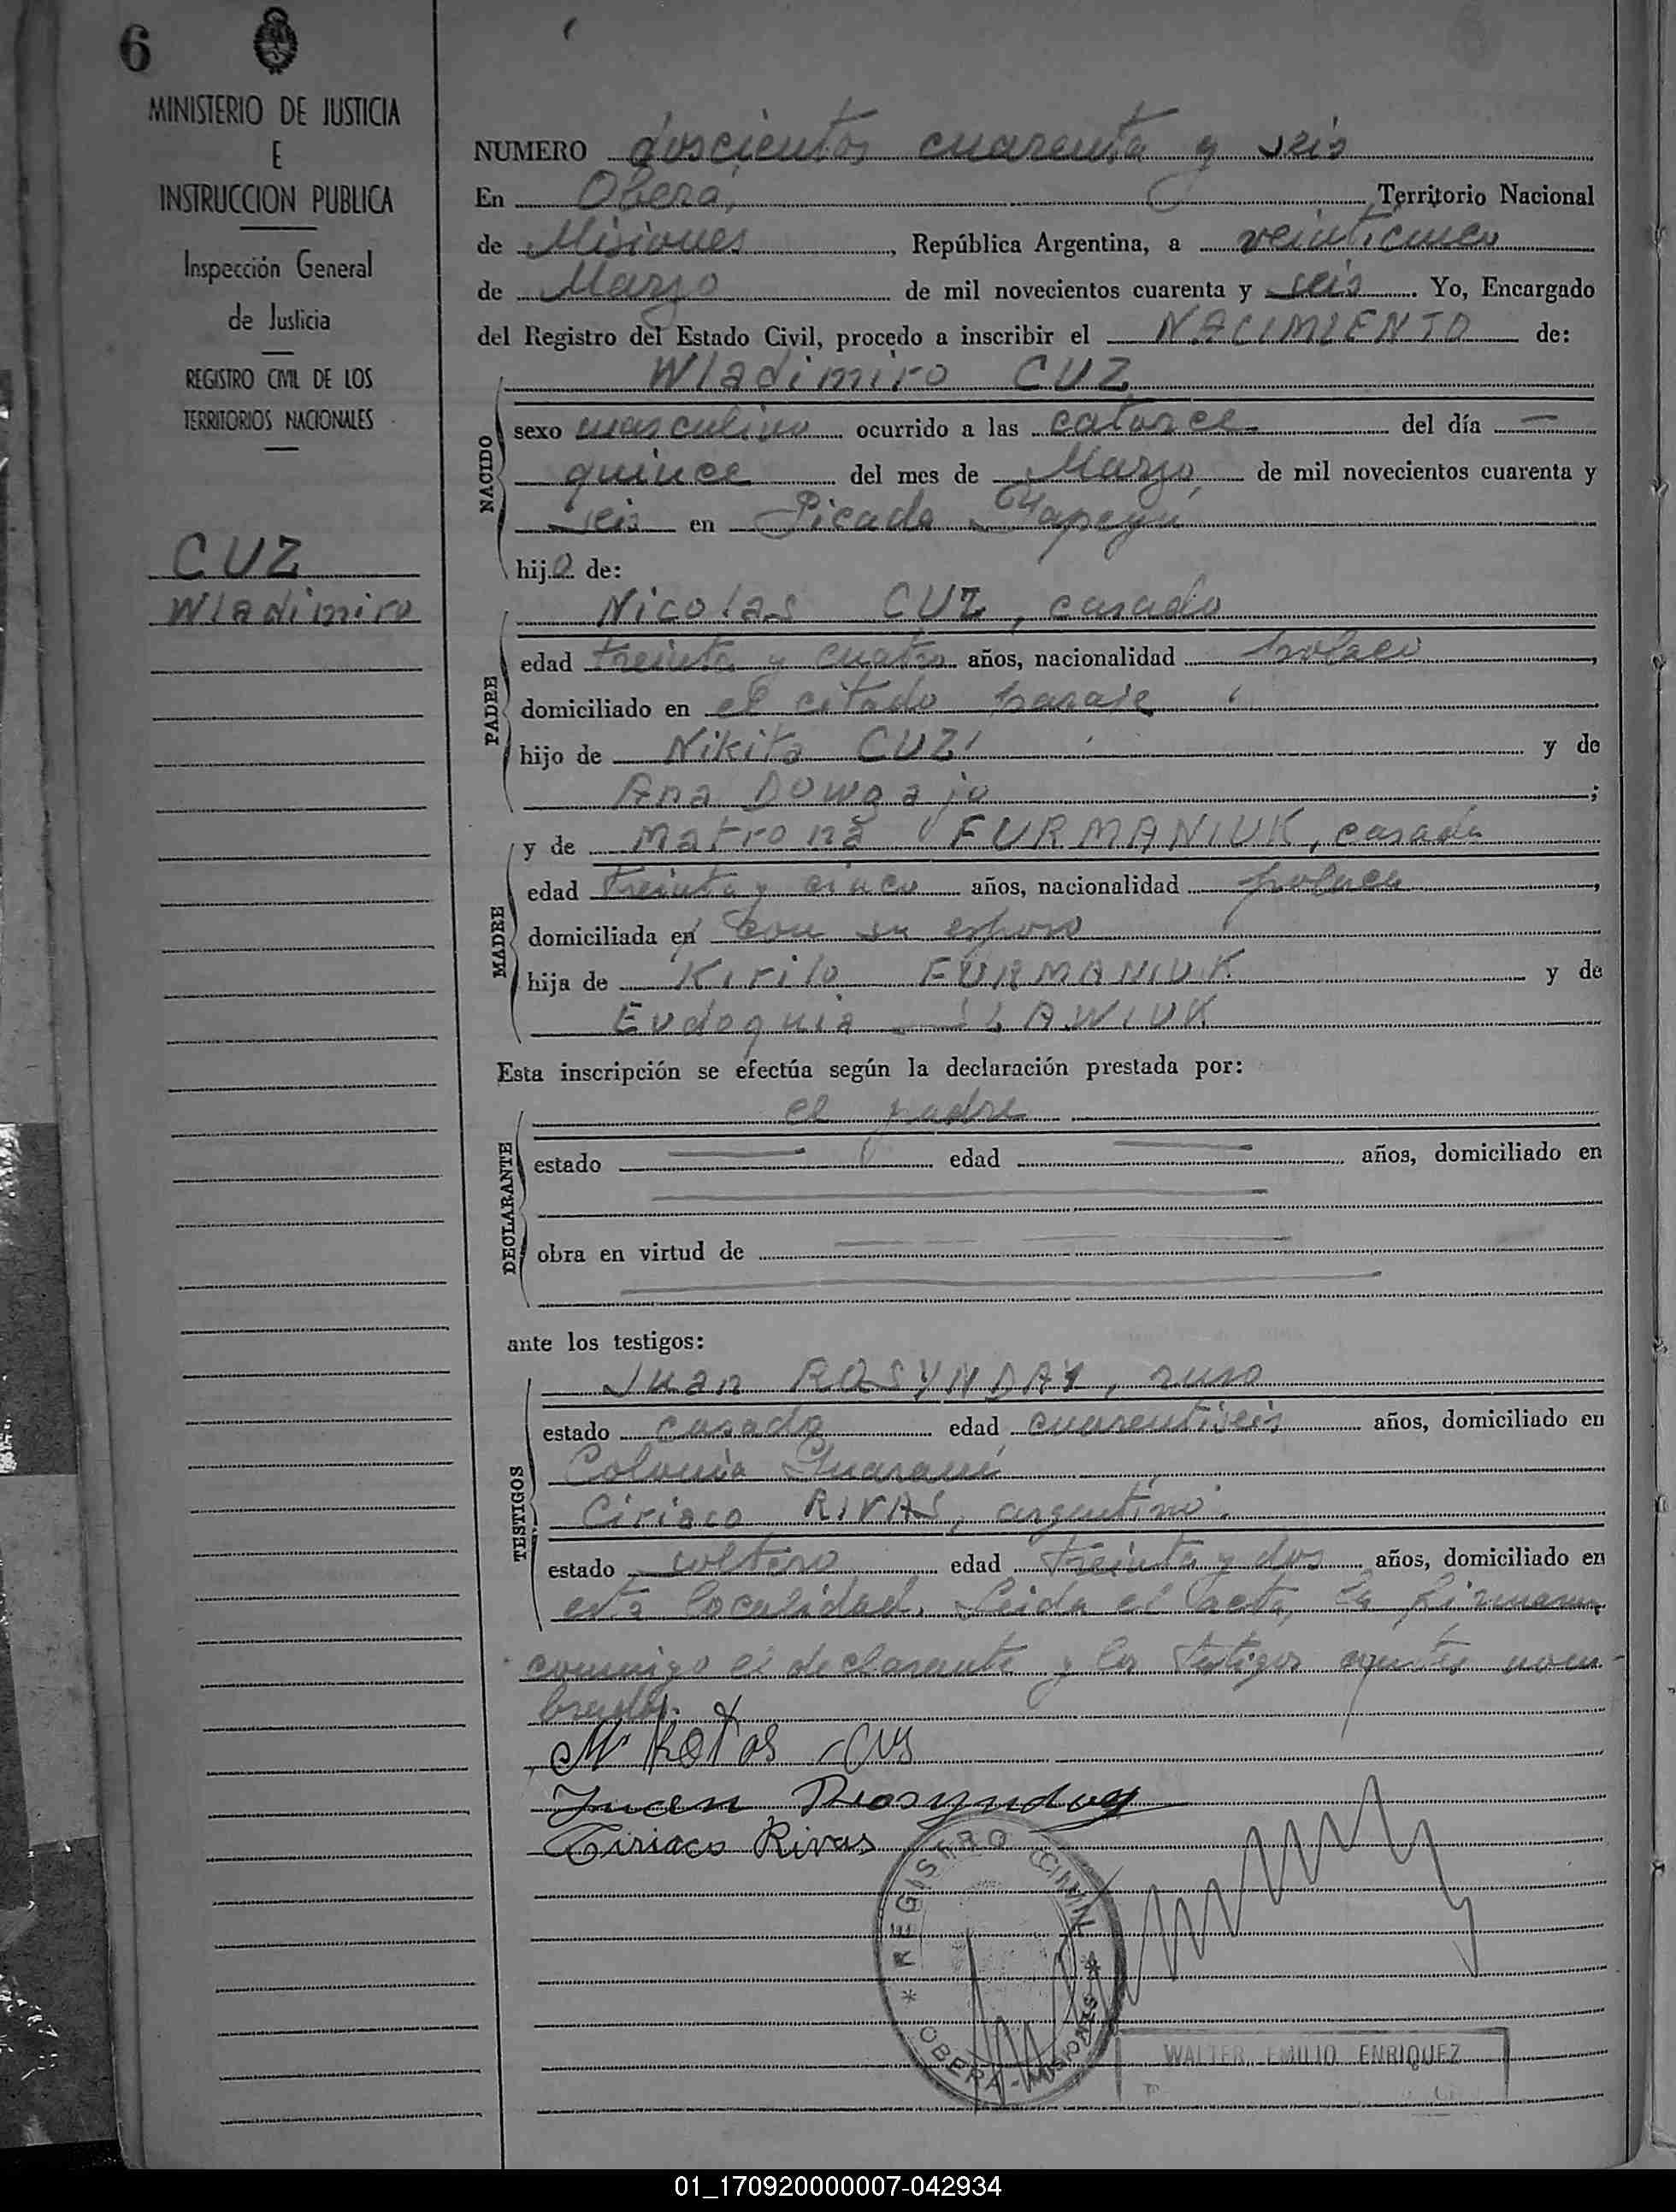 6
MINISTERIO DE JUSTICIA
E
INSTRUCCION PUBLICA
Inspección General
de Justicia
REGISTRO CIVIL DE LOS
TERRITORIOS NACIONALES
CUZ
Wladimiro
NUMERO doscientos cuarenta y seis
En Oberá, Territorio Nacional
de Misiones, República Argentina, a veinticinco
de Marzo de mil novecientos cuarenta y seis. Yo, Encargado
del Registro del Estado Civil, procedo a inscribir el NACIMIENTO de:
Wladimiro CUZ
NACIDO
sexo masculino ocurrido a las catorce del día —
quince del mes de Marzo, de mil novecientos cuarenta y
seis en Picada Yapeyú
hijo de:
Nicolas CUZ, casado
PADRE
edad treinta y cuatro años, nacionalidad polaco,
domiciliado en el citado paraje
hijo de Nikita CUZ y de
Ana Dowgajo;
y de Matrona FURMANIUK, casada
MADRE
edad treinta y cinco años, nacionalidad polaca,
domiciliada en con su esposo
hija de Kirilo FURMANIUK y de
Eudoquia SLAWIUK
Esta inscripción se efectúa según la declaración prestada por:
el padre
DECLARANTE
estado edad años, domiciliado en
obra en virtud de
ante los testigos:
Juan ROSYNDAY, ruso
TESTIGOS
estado casado edad cuarentiseis años, domiciliado en
Colonia Guaraní
Ciriaco RIVAS, argentino.
estado soltero edad treinta y dos años, domiciliado en
esta localidad. Leida el acta, la firman
conmigo el declarante y los testigos nom-
brados.
Juan Rosynday
Ciriaco Rivas
REGISTRO CIVIL
* OBERA - MISIONES *
WALTER EMILIO ENRIQUEZ
01_170920000007-042934